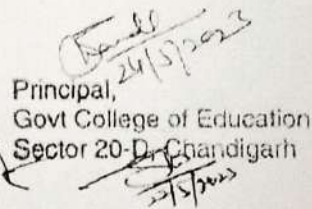 24/5/2023
Principal,
Govt College of Education
Sector 20-D, Chandigarh
22/5/2023